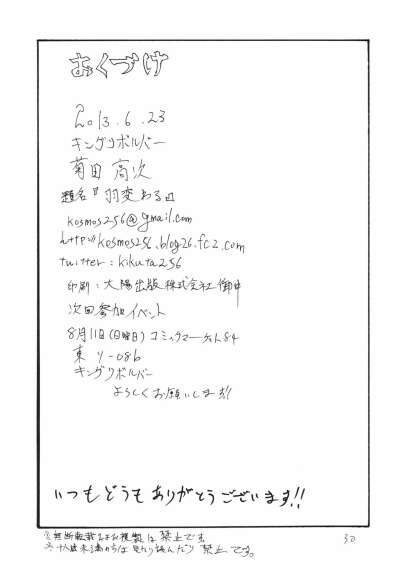 おくづけ
2013.6.23
キングリボルバー
菊田 高次
題名『羽変わる』
kosmos256@gmail.com
http://kosmos256.blog26.fc2.com
twitter:kikuta256
印刷:大陽出版株式会社御中
次回参加イベント
8月11日(日曜日)コミックマーケット84
東 リ-08b
キングリボルバー
よろしくお願いします!!
いつもどうもありがとうございます!!
※無断転載および複製は禁止です
※十八歳未満の方は見たり読んだり禁止です。
30